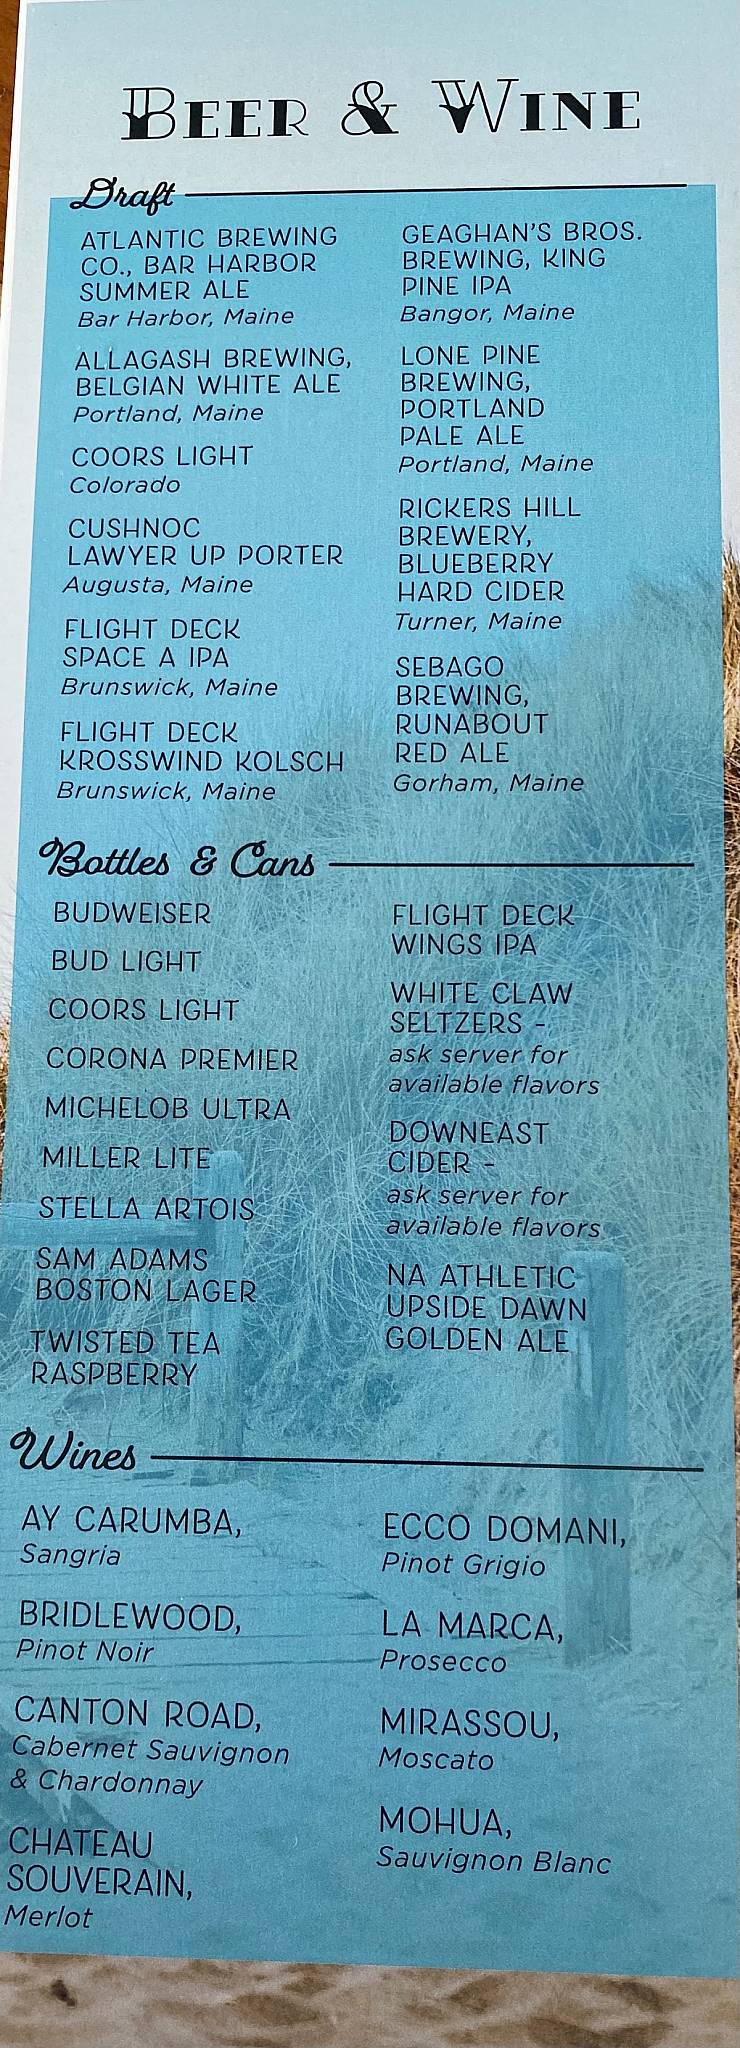 BEER & WINE
Draft
ATLANTIC BREWING
CO., BAR HARBOR
SUMMER ALE
Bar Harbor, Maine
ALLAGASH BREWING,
BELGIAN WHITE ALE
Portland, Maine
COORS LIGHT
Colorado
CUSHNOC
LAWYER UP PORTER
Augusta, Maine
FLIGHT DECK
SPACE A IPA
Brunswick, Maine
FLIGHT DECK
KROSSWIND KOLSCH
Brunswick, Maine
GEAGHAN'S BROS.
BREWING, KING
PINE IPA
Bangor, Maine
LONE PINE
BREWING,
PORTLAND
PALE ALE
Portland, Maine
RICKERS HILL
BREWERY,
BLUEBERRY
HARD CIDER
Turner, Maine
SEBAGO
BREWING,
RUNABOUT
RED ALE
Gorham, Maine
Bottles & Cans
BUDWEISER
BUD LIGHT
COORS LIGHT
CORONA PREMIER
MICHELOB ULTRA
MILLER LITE
STELLA ARTOIS
SAM ADAMS
BOSTON LAGER
TWISTED TEA
RASPBERRY
FLIGHT DECK
WINGS IPA
WHITE CLAW
SELTZERS -
ask server for
available flavors
DOWNEAST
CIDER -
ask server for
available flavors
NA ATHLETIC
UPSIDE DAWN
GOLDEN ALE
Wines
AY CARUMBA,
Sangria
BRIDLEWOOD,
Pinot Noir
CANTON ROAD,
Cabernet Sauvignon
& Chardonnay
CHATEAU
SOUVERAIN,
Merlot
ECCO DOMANI,
Pinot Grigio
LA MARCA,
Prosecco
MIRASSOU,
Moscato
MOHUA,
Sauvignon Blanc